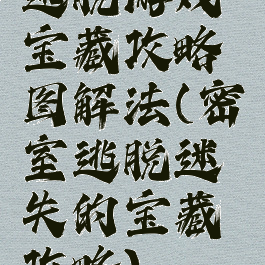 逃脱游戏
宝藏攻略
图解法(密
室逃脱迷
失的宝藏
攻略)